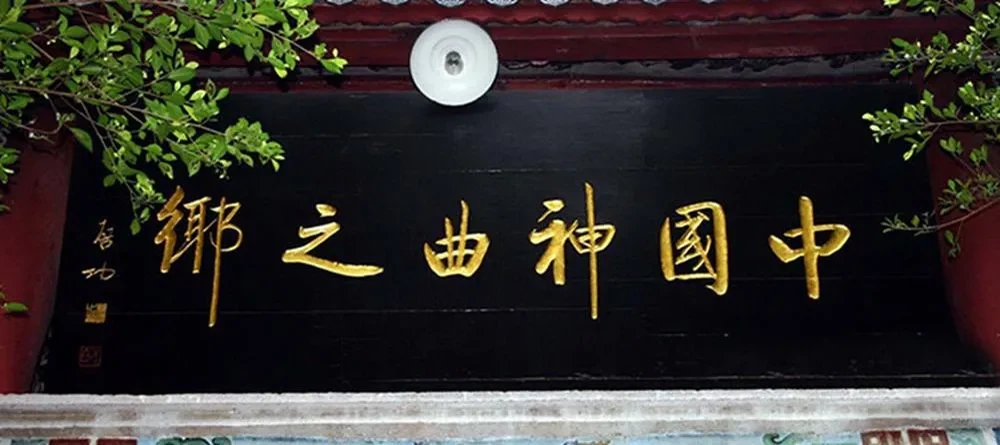 中國神曲之鄉
启功